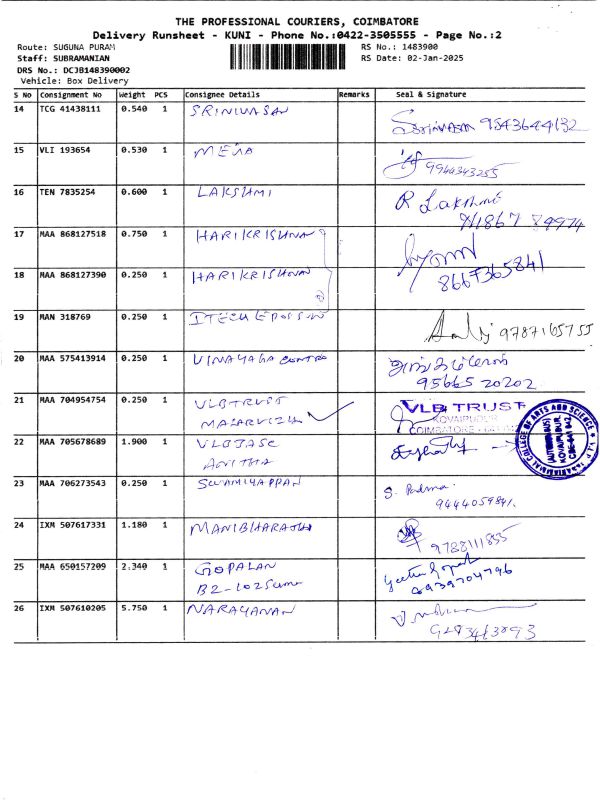 THE PROFESSIONAL COURIERS, COIMBATORE
Delivery Runsheet - KUNI - Phone No.:0422-3505555 - Page No.:2
Route: SUGUNA PURAM
RS No.: 1483900
Staff: SUBRAMANIAN
RS Date: 02-Jan-2025
DRS No.: DCJB148390002
Vehicle: Box Delivery
S No Consignment No Weight PCS Consignee Details Remarks Seal & Signature
14 TCG 41438111 0.540 1 SRINIVASAN Srinivasan 9543644132
15 VLI 193654 0.530 1 MEJA 9944343255
16 TEN 7835254 0.600 1 LAKSHMI R Lakshmi
17 MAA 868127518 0.750 1 HARIKRISHNA
18 MAA 868127390 0.250 1 HARIKRISHNAN 8667365841
19 MAN 318769 0.250 1 ITECH 9787165755
20 MAA 575413914 0.250 1 VINAYAGA 95665 20202
21 MAA 704954754 0.250 1 VLBTRUST VLB TRUST
MALARVIZHI KOVAIPUDUR
COIMBATORE
22 MAA 705678689 1.900 1 VLBJASC
ANITHA
COLLEGE OF ARTS AND SCIENCE
KOVAIPUDUR
23 MAA 706273543 0.250 1 SWAMIYAPPAN S. Padma
9444059841.
24 IXM 507617331 1.180 1 MANIBHARATHI 9788111855
25 MAA 650157209 2.340 1 GOPALAN
B2-102 8939704796
26 IXM 507610205 5.750 1 NARAYANAN